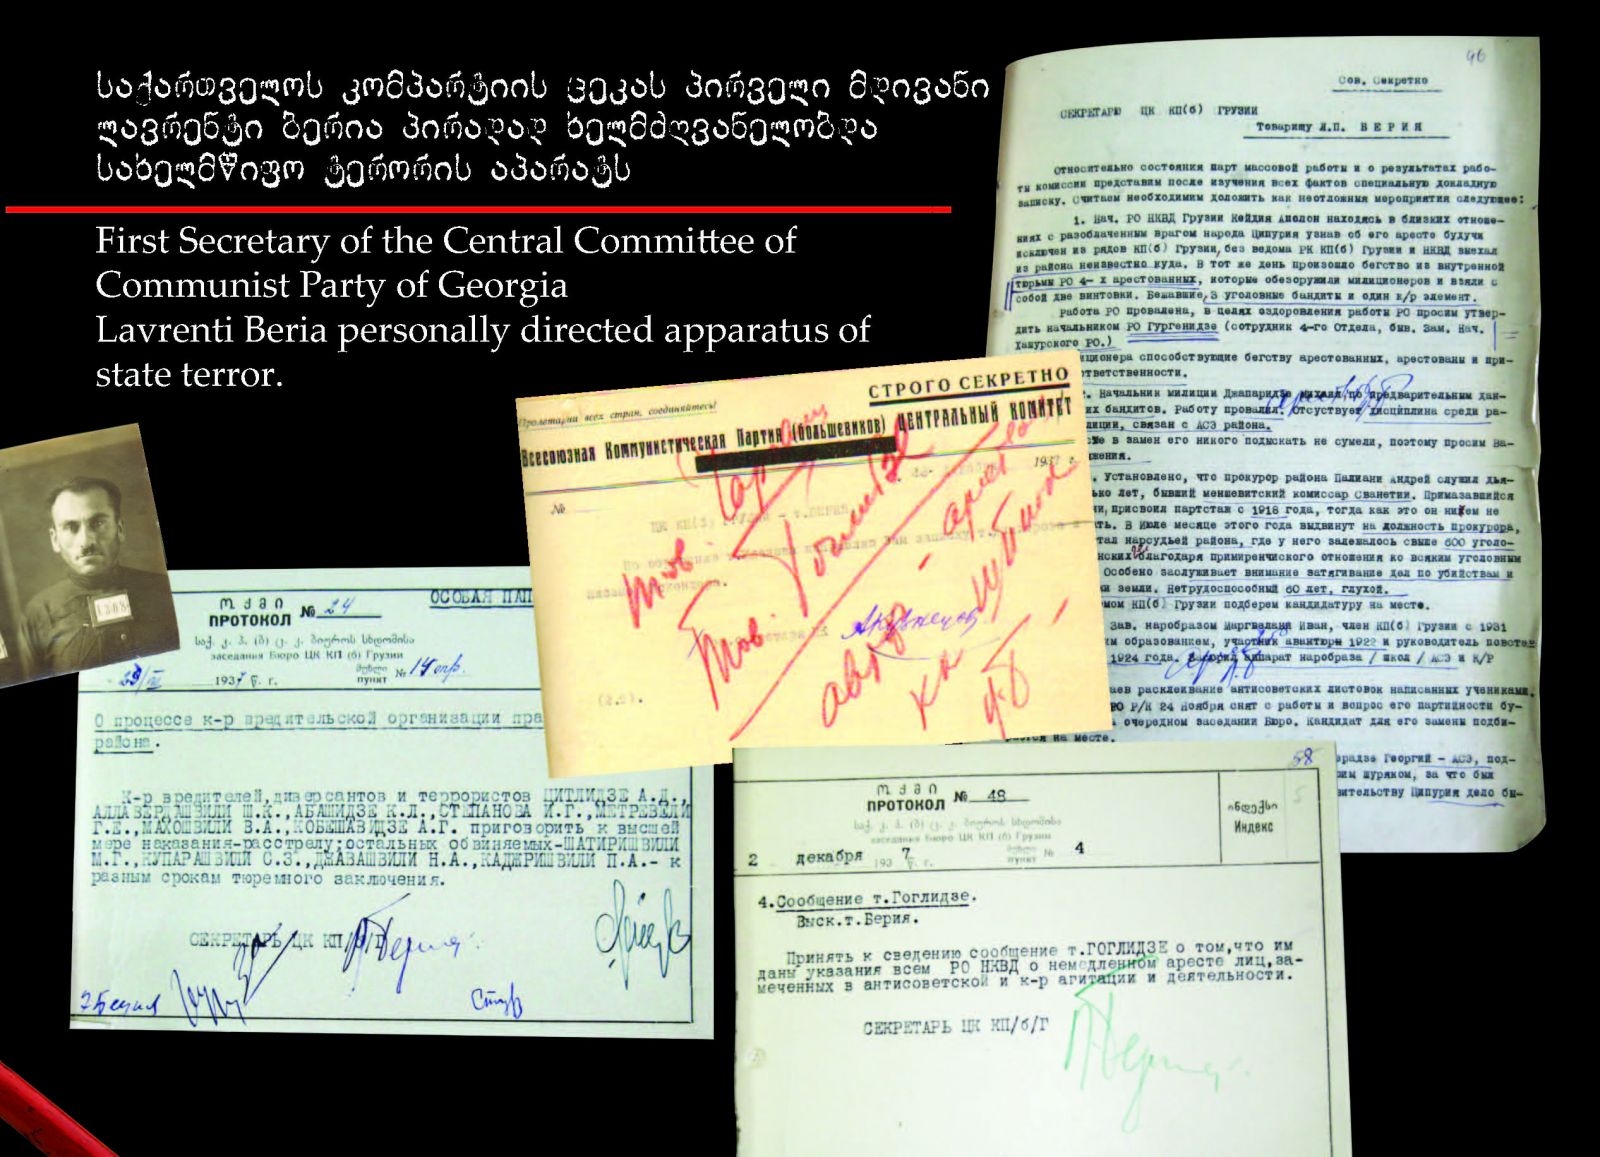 საქართველოს კომპარტიის ცეკას პირველი მდივანი
ლავრენტი ბერია პირადად ხელმძღვანელობდა
სახელმწიფო ტერორის აპარატს
First Secretary of the Central Committee of
Communist Party of Georgia
Lavrenti Beria personally directed apparatus of
state terror.
96
Сов. Секретно
СЕКРЕТАРЮ ЦК КП(б) ГРУЗИИ
Товарищу Л.П. БЕРИЯ
Относительно состояния парт массовой работы и о результатах рабо-
ты комиссии представим после изучения всех фактов специальную докладную
записку. Считаем необходимим доложить как неотложня мероприятия следующее:
1. Нач. РО НКВД Грузии Кейдия Аполон находясь в близких отноше-
ниях с разоблаченным врагом народа Ципурия узнав об его аресте будучи
исключен из рядов КП(б) Грузии, без ведома РК КП(б) Грузии и НКВД выехал
из района неизвестно куда. В тот же день произошло бегство из внутренной
тюрьмы РО 4- х арестованных, которые обезоружили милиционеров и взяли с
собой две винтовки. Бежавшие, 3 уголовные бандиты и один к/р элемент.
Работа РО провалена, в целях оздоровления работы РО просим утвер-
дить начальником РО Гургенидзе (сотрудник 4-го Отдела, быв. Зам. Нач.
Хашурского РО.)
иционера способствующие бегству арестованных, арестованы и при-
тветственности.
. Начальник милиции Джапаридзе Михаил по предварительным дан-
их бандитов. Работу провалил. Отсуствует дисциплина среди ра-
лиции, связан с АСЭ района.
е в замен его никого подыскать не сумели, поэтому просим Ва-
жения.
. Установлено, что прокурор района Палиани Андрей служил дья-
ько лет, бывший меншевитский комиссар Сванетии. Примазавшийся
ии, присвоил партстаж с 1918 года, тогда как это он ничем не
ать. В Июле месяце этого года выдвинут на должность прокурора,
тал нарсудьей района, где у него залежалось свыше 600 уголо-
нских благодаря примиренческого отношения ко всяким уголовным
Особено заслуживает внимание затягивание дел по убийствам и
ки земли. Нетрудоспособный 60 лет, глухой.
мом КП(б) Грузии подберем кандидатуру на месте.
Зав. наробразом Маргвелани Иван, член КП(б) Грузии с 1931
им образованием, участник авантюры 1922 и руководитель повстан-
1924 года. Засорил аппарат наробраза / школ / АСЭ и К/Р
аев расклеивание антисоветских листовок написанных учениками.
РО Р/К 24 Ноября снят с работы и вопрос его партийности бу-
очередном заседании Бюро. Кандидат для его замены подби-
рается на месте.
радзе Георгий - АСЭ, под-
им шуряком, за что был
вительству Ципурия дело бы-
СТРОГО СЕКРЕТНО
Пролетарии всех стран, соединяйтесь!
Всесоюзная Коммунистическая Партия (большевиков) ЦЕНТРАЛЬНЫЙ КОМИТЕТ
1937 г.
№
ЦК КП(б) ГРУЗИИ - т. БЕРИЯ
тов.
Тов.
1308
ოქმი
ПРОТОКОЛ № 24
ОСОБАЯ ПАП
საქ. კ. პ. (ბ) ც. კ. ბიუროს სხდომისა
заседания Бюро ЦК КП (б) Грузии
1937 წ. г.
მუხლი
пункт № 14 опр.
О процессе к-р вредительской организации пра
района.
К-р вредителей, диверсантов и террористов ЦИТЛИДЗЕ А.Д.,
АЛЛАВЕРДАШВИЛИ Ш.К., АБАШИДЗЕ К.Л., СТЕПАНОВА И.Г., МЕТРЕВЕЛИ
Г.Е., МАХОШВИЛИ В.А., КОБЕШАВИДЗЕ А.Г. приговорить к высшей
мере наказания-расстрелу; остальных обвиняемых-ШАТИРИШВИЛИ
М.Г., КУПАРАШВИЛИ С.З., ДЖАВАШВИЛИ Н.А., КАДЖРИШВИЛИ П.А.- к
разным срокам тюремного заключения.
СЕКРЕТАРЬ ЦК КП/б/Г
58
ოქმი
ПРОТОКОЛ № 48
საქ. კ. პ. (ბ) ც. კ. ბიუროს სხდომისა
заседания Бюро ЦК КП (б) Грузии
2 декабря 1937 წ. г.
მუხლი
пункт № 4
ინდექსი
Индекс
5
4. Сообщение т. Гоглидзе.
Выск. т. Берия.
Принять к сведению сообщение т. ГОГЛИДЗЕ о том, что им
даны указания всем РО НКВД о немедленном аресте лиц, за-
меченных в антисоветской и к-р агитации и деятельности.
СЕКРЕТАРЬ ЦК КП/б/Г